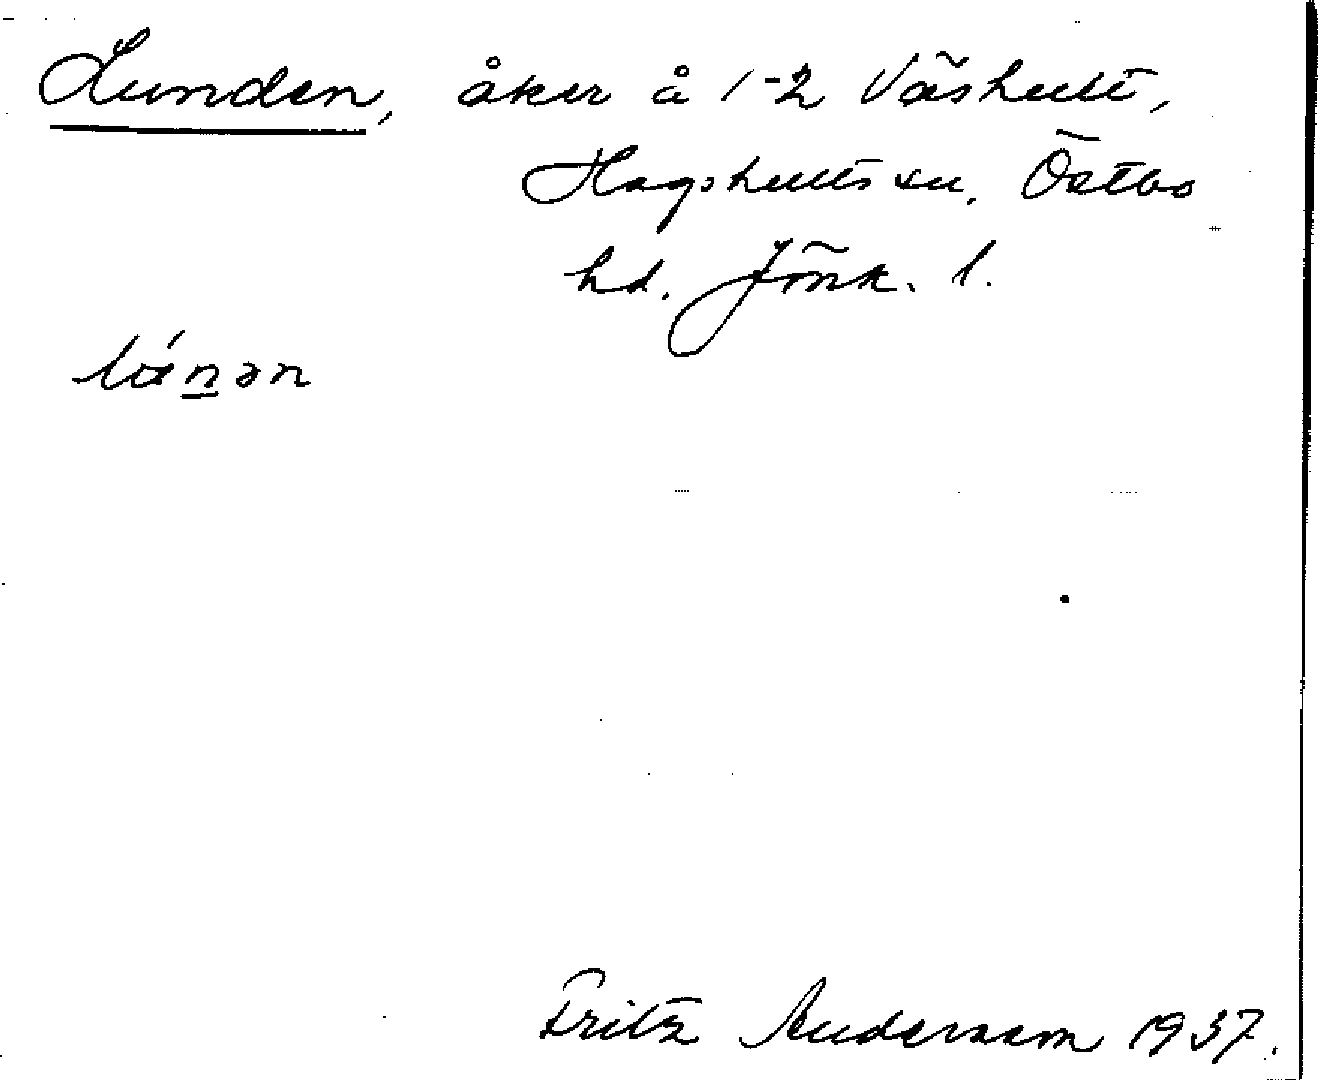 Lunden, åker å 1-2 Väshult,
Hagshults sn, Östbo
hd. Jönk. l.
Fritz Andersson 1937.